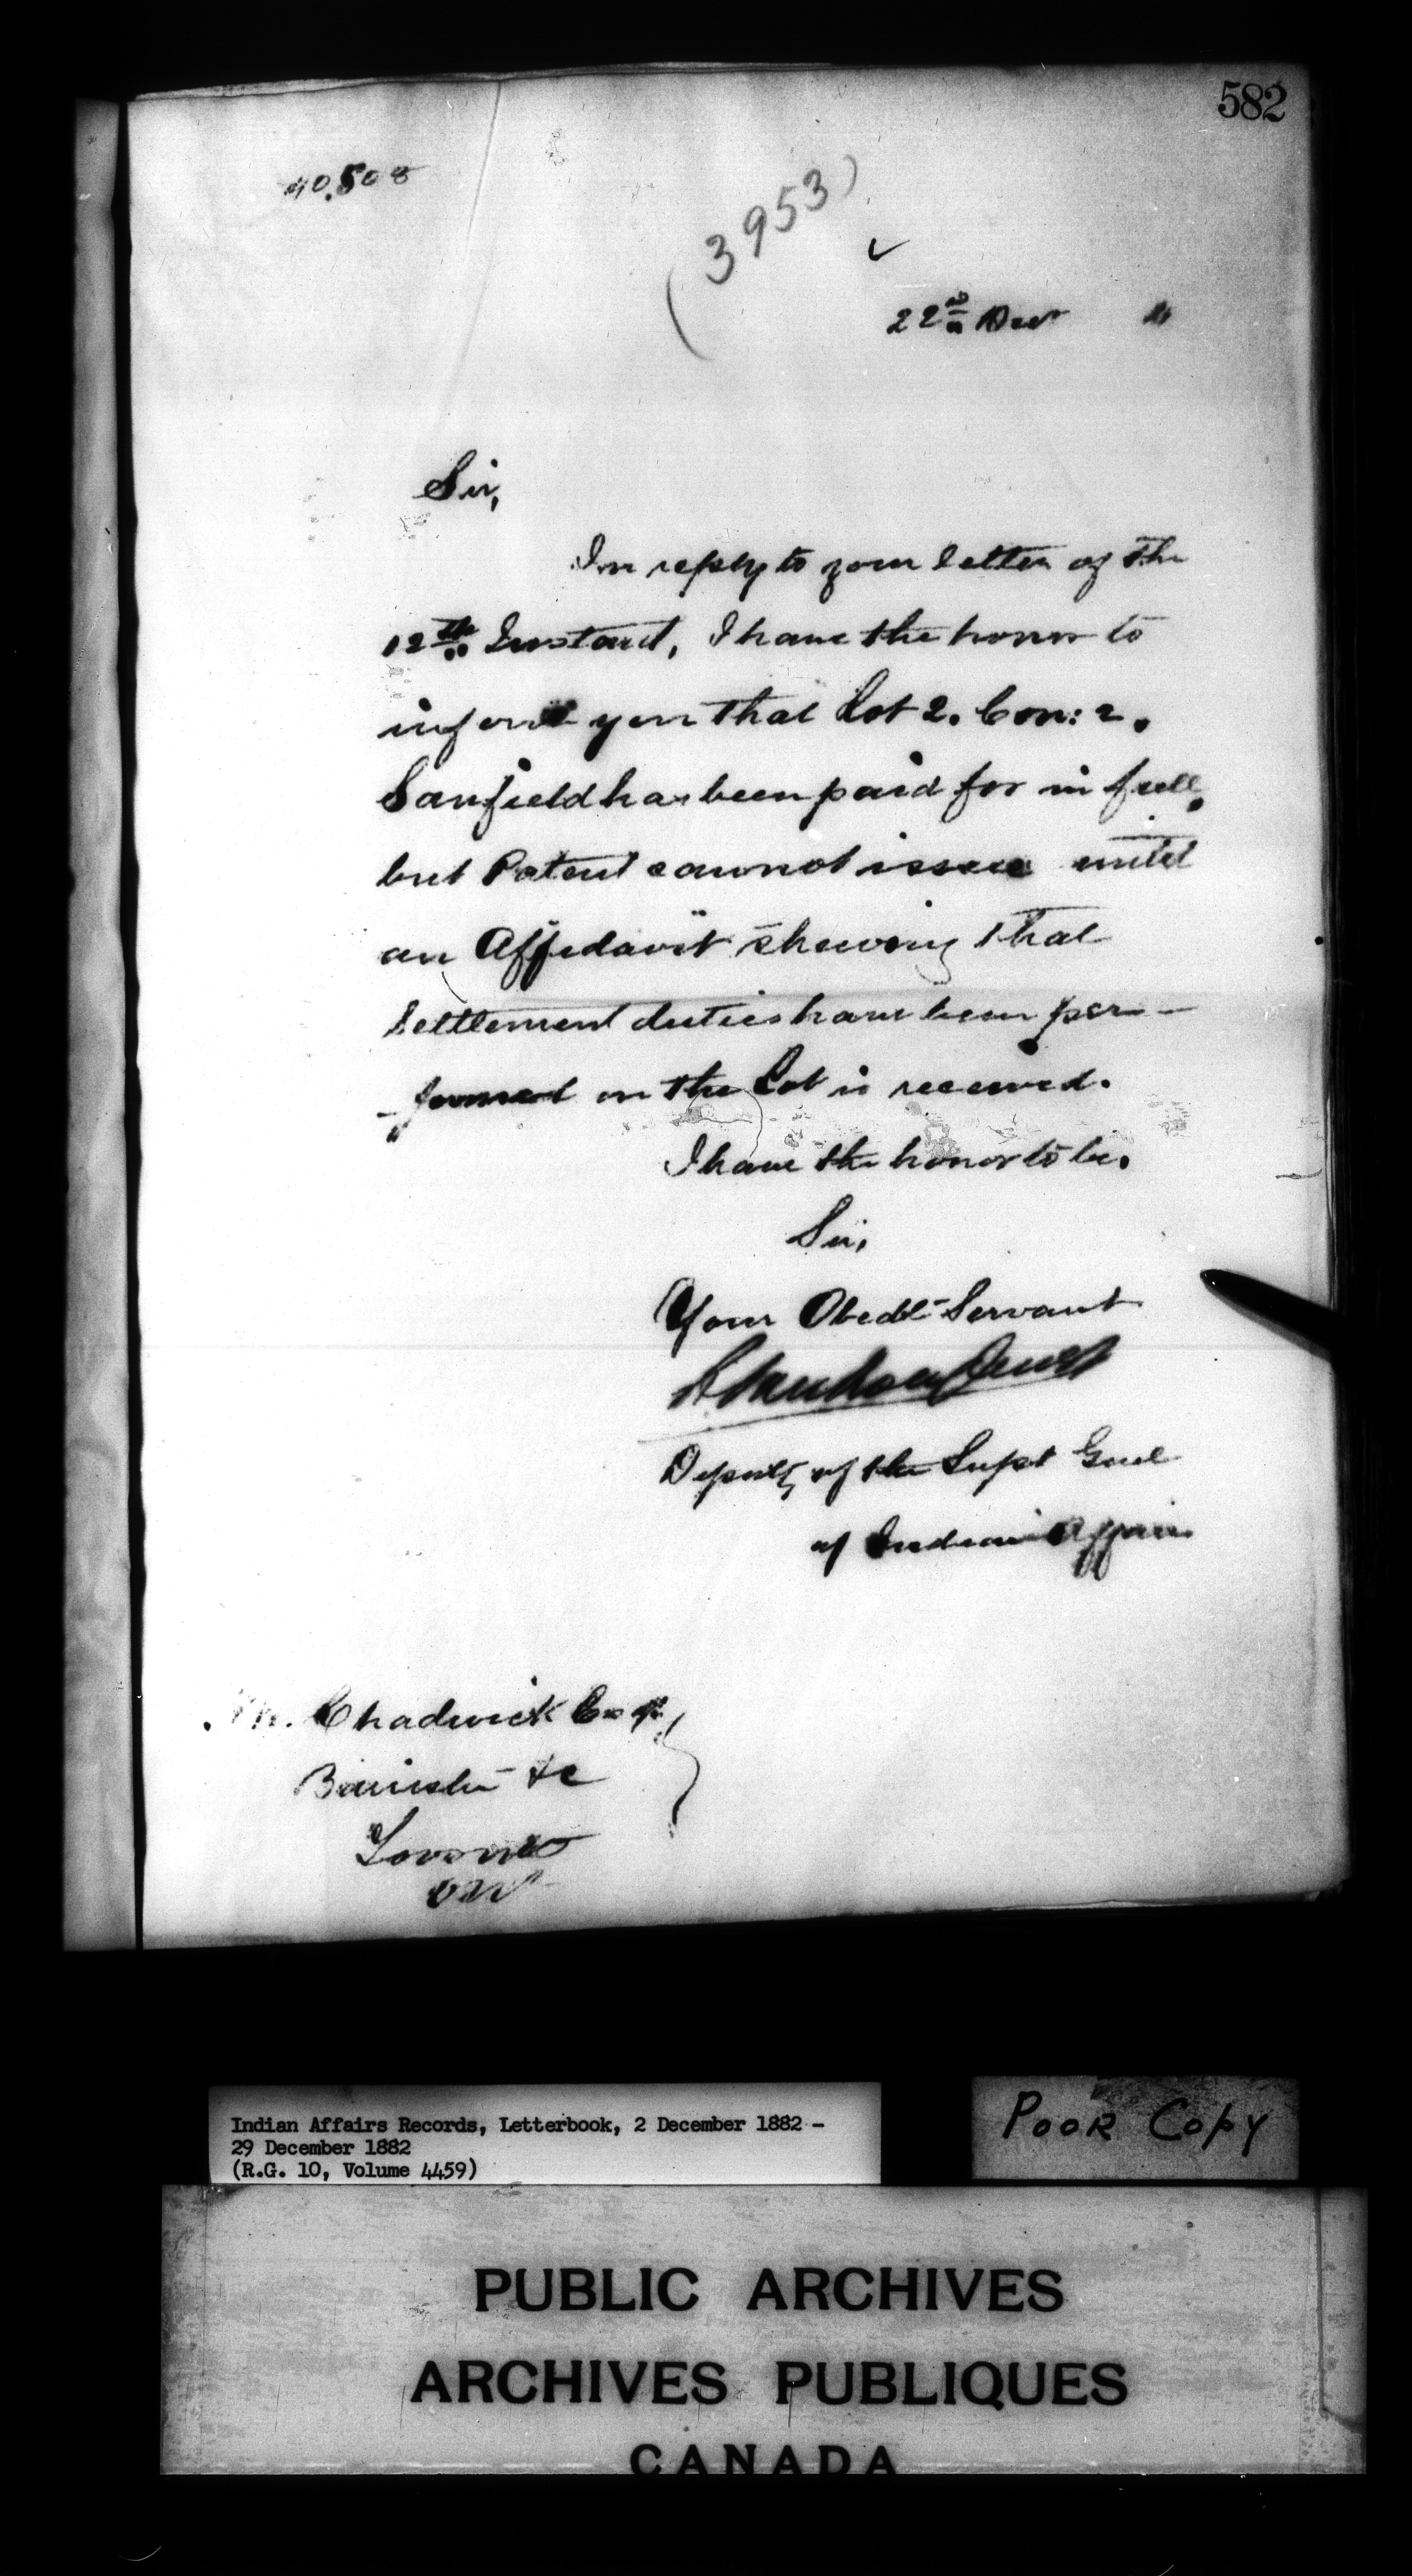 582
40.508
(3953)
22nd Decr "
Sir,
In reply to your letter of the
12th Instant, I have the honor to
inform you that Lot 2. Con: 2.
Sanfield has been paid for in full,
but Patent cannot issue until
an Affidavit shewing that
Settlement duties have been per-
-formed on the Lot is received.
I have the honor to be.
Sir,
Your Obedt Servant
Deputy of the Supt Genl
of Indian Affairs
Chadwick Esq.
Barrister &c
Toronto
Ont
Indian Affairs Records, Letterbook, 2 December 1882 -
29 December 1882
(R.G. 10, Volume 4459)
Poor Copy
PUBLIC ARCHIVES
ARCHIVES PUBLIQUES
CANADA